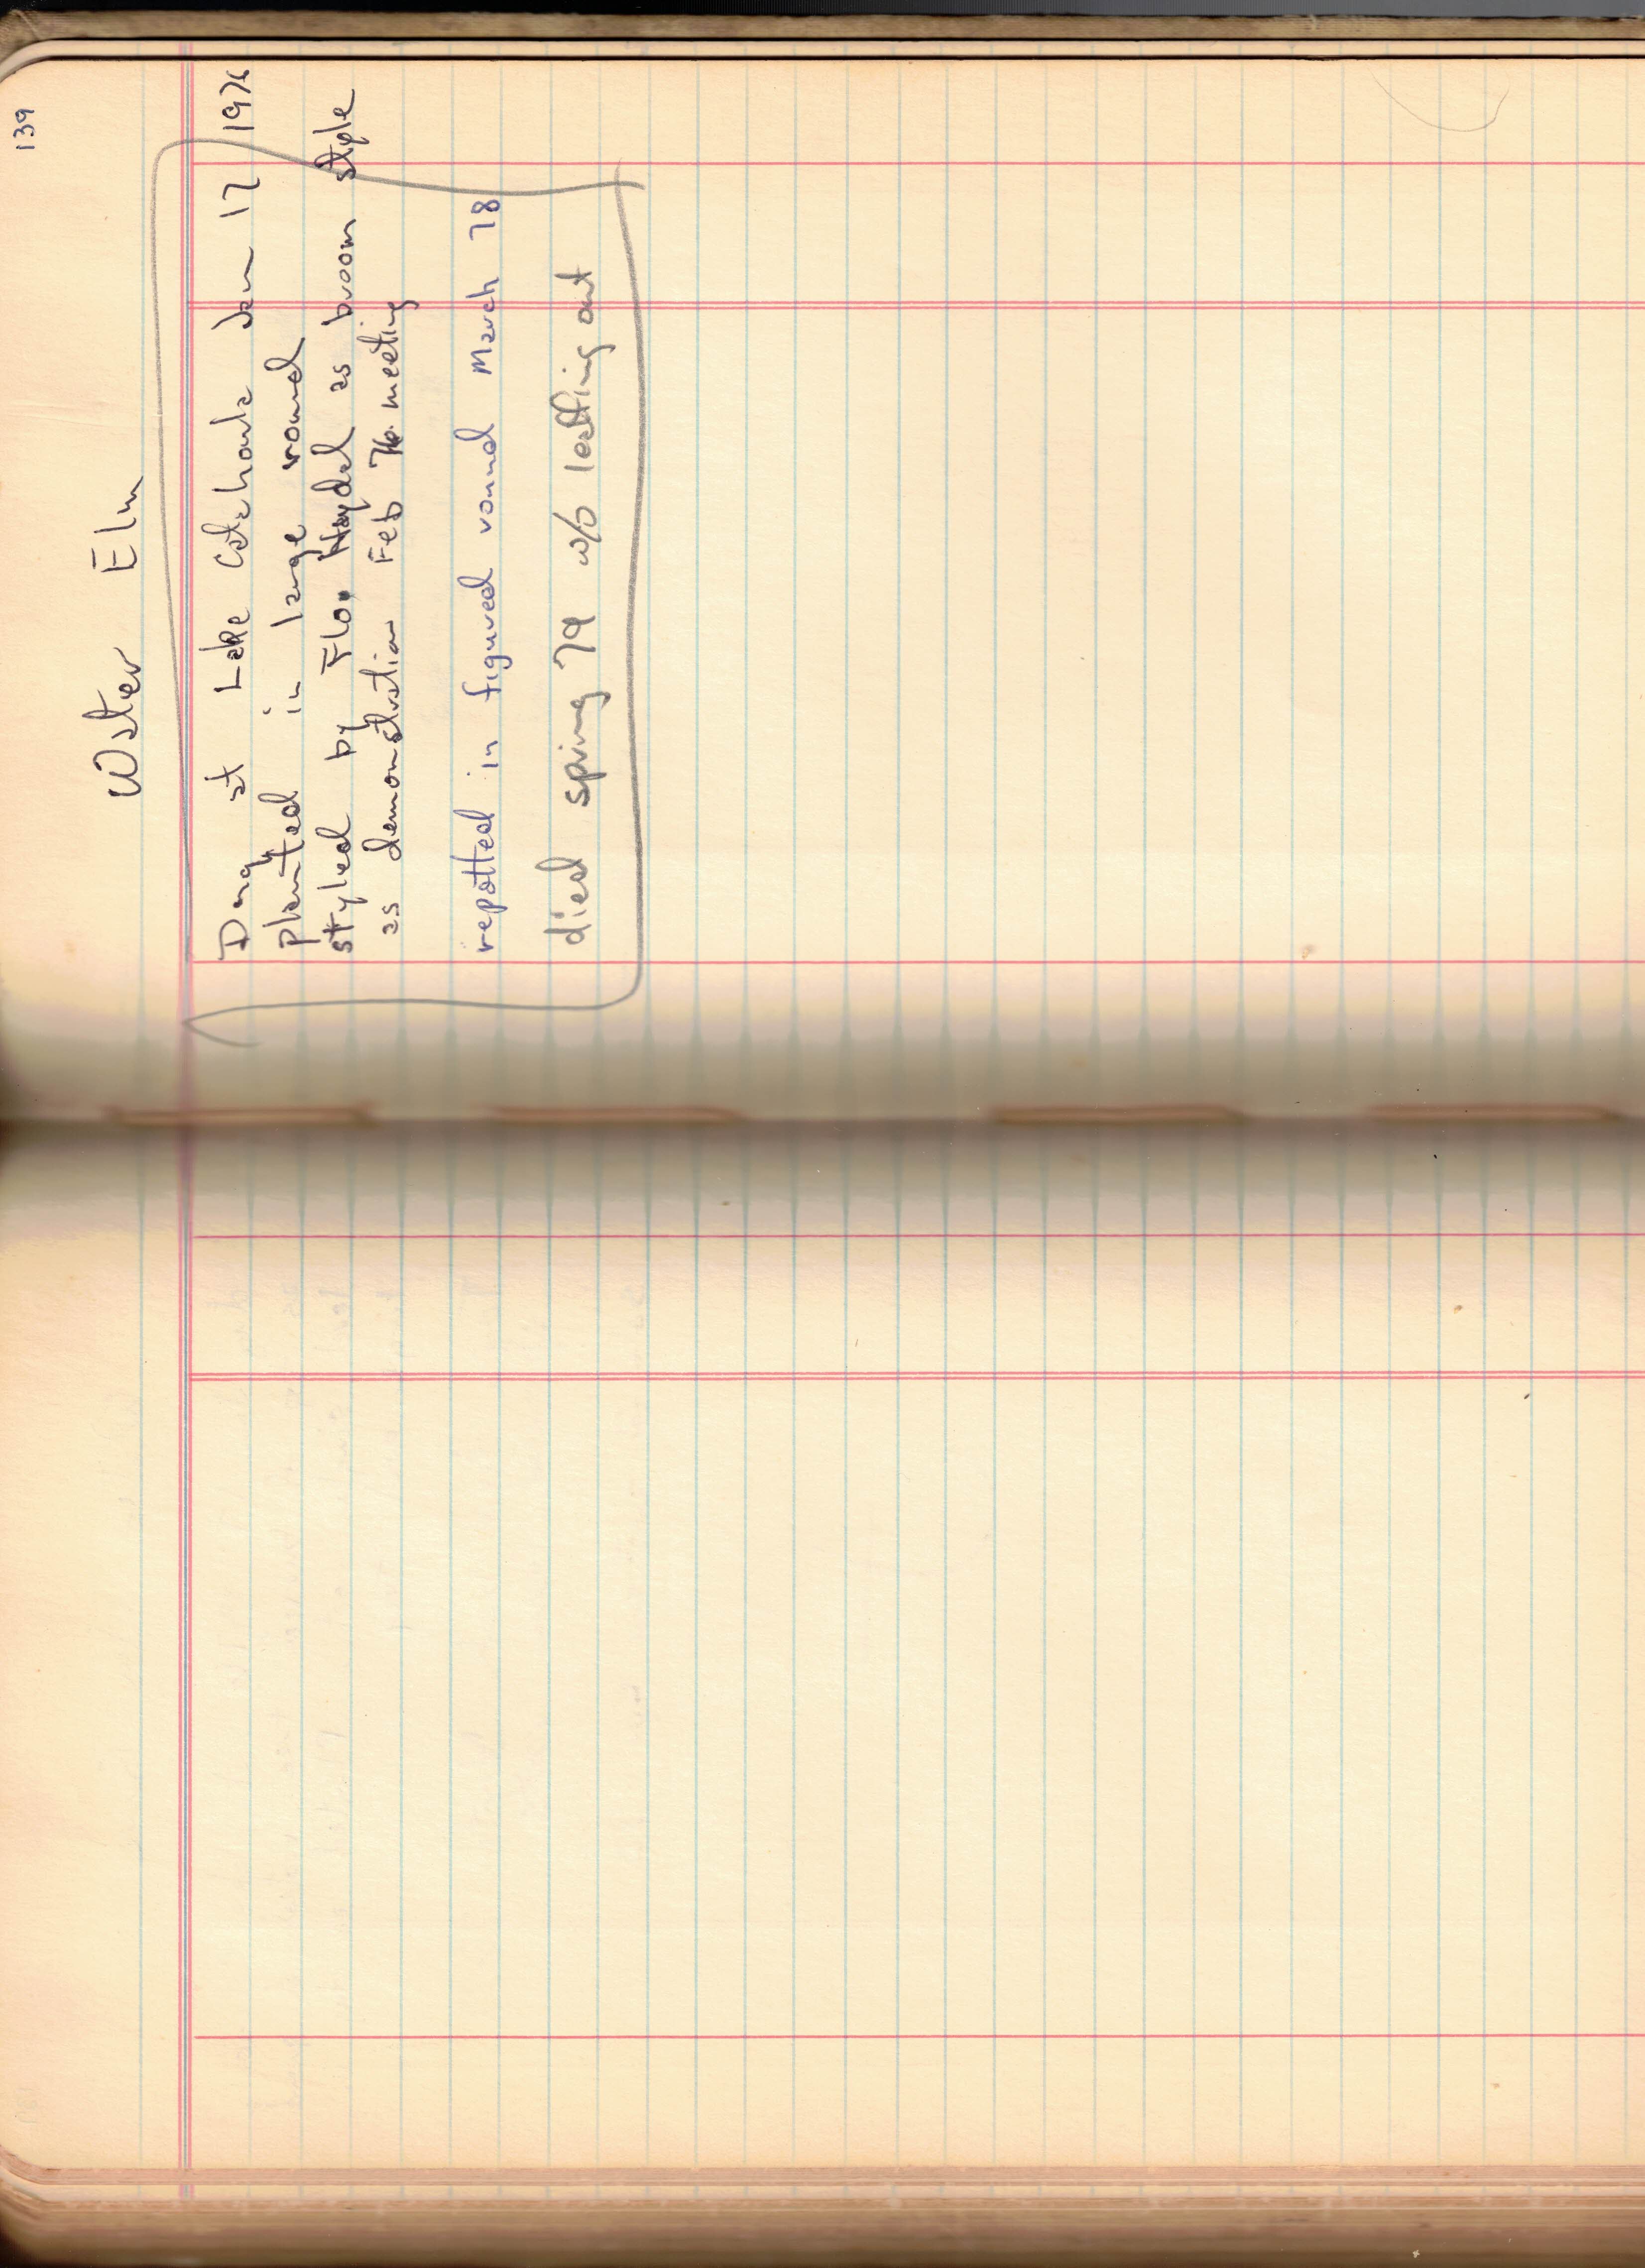 139
Water Elm
Dug at Lake Catahoula Jan 17 1976
planted in large round
styled by Flo. Heydel as broom style
as demonstration Feb 76 meeting
repotted in figured round March 78
died spring 79 w/o leaffing out